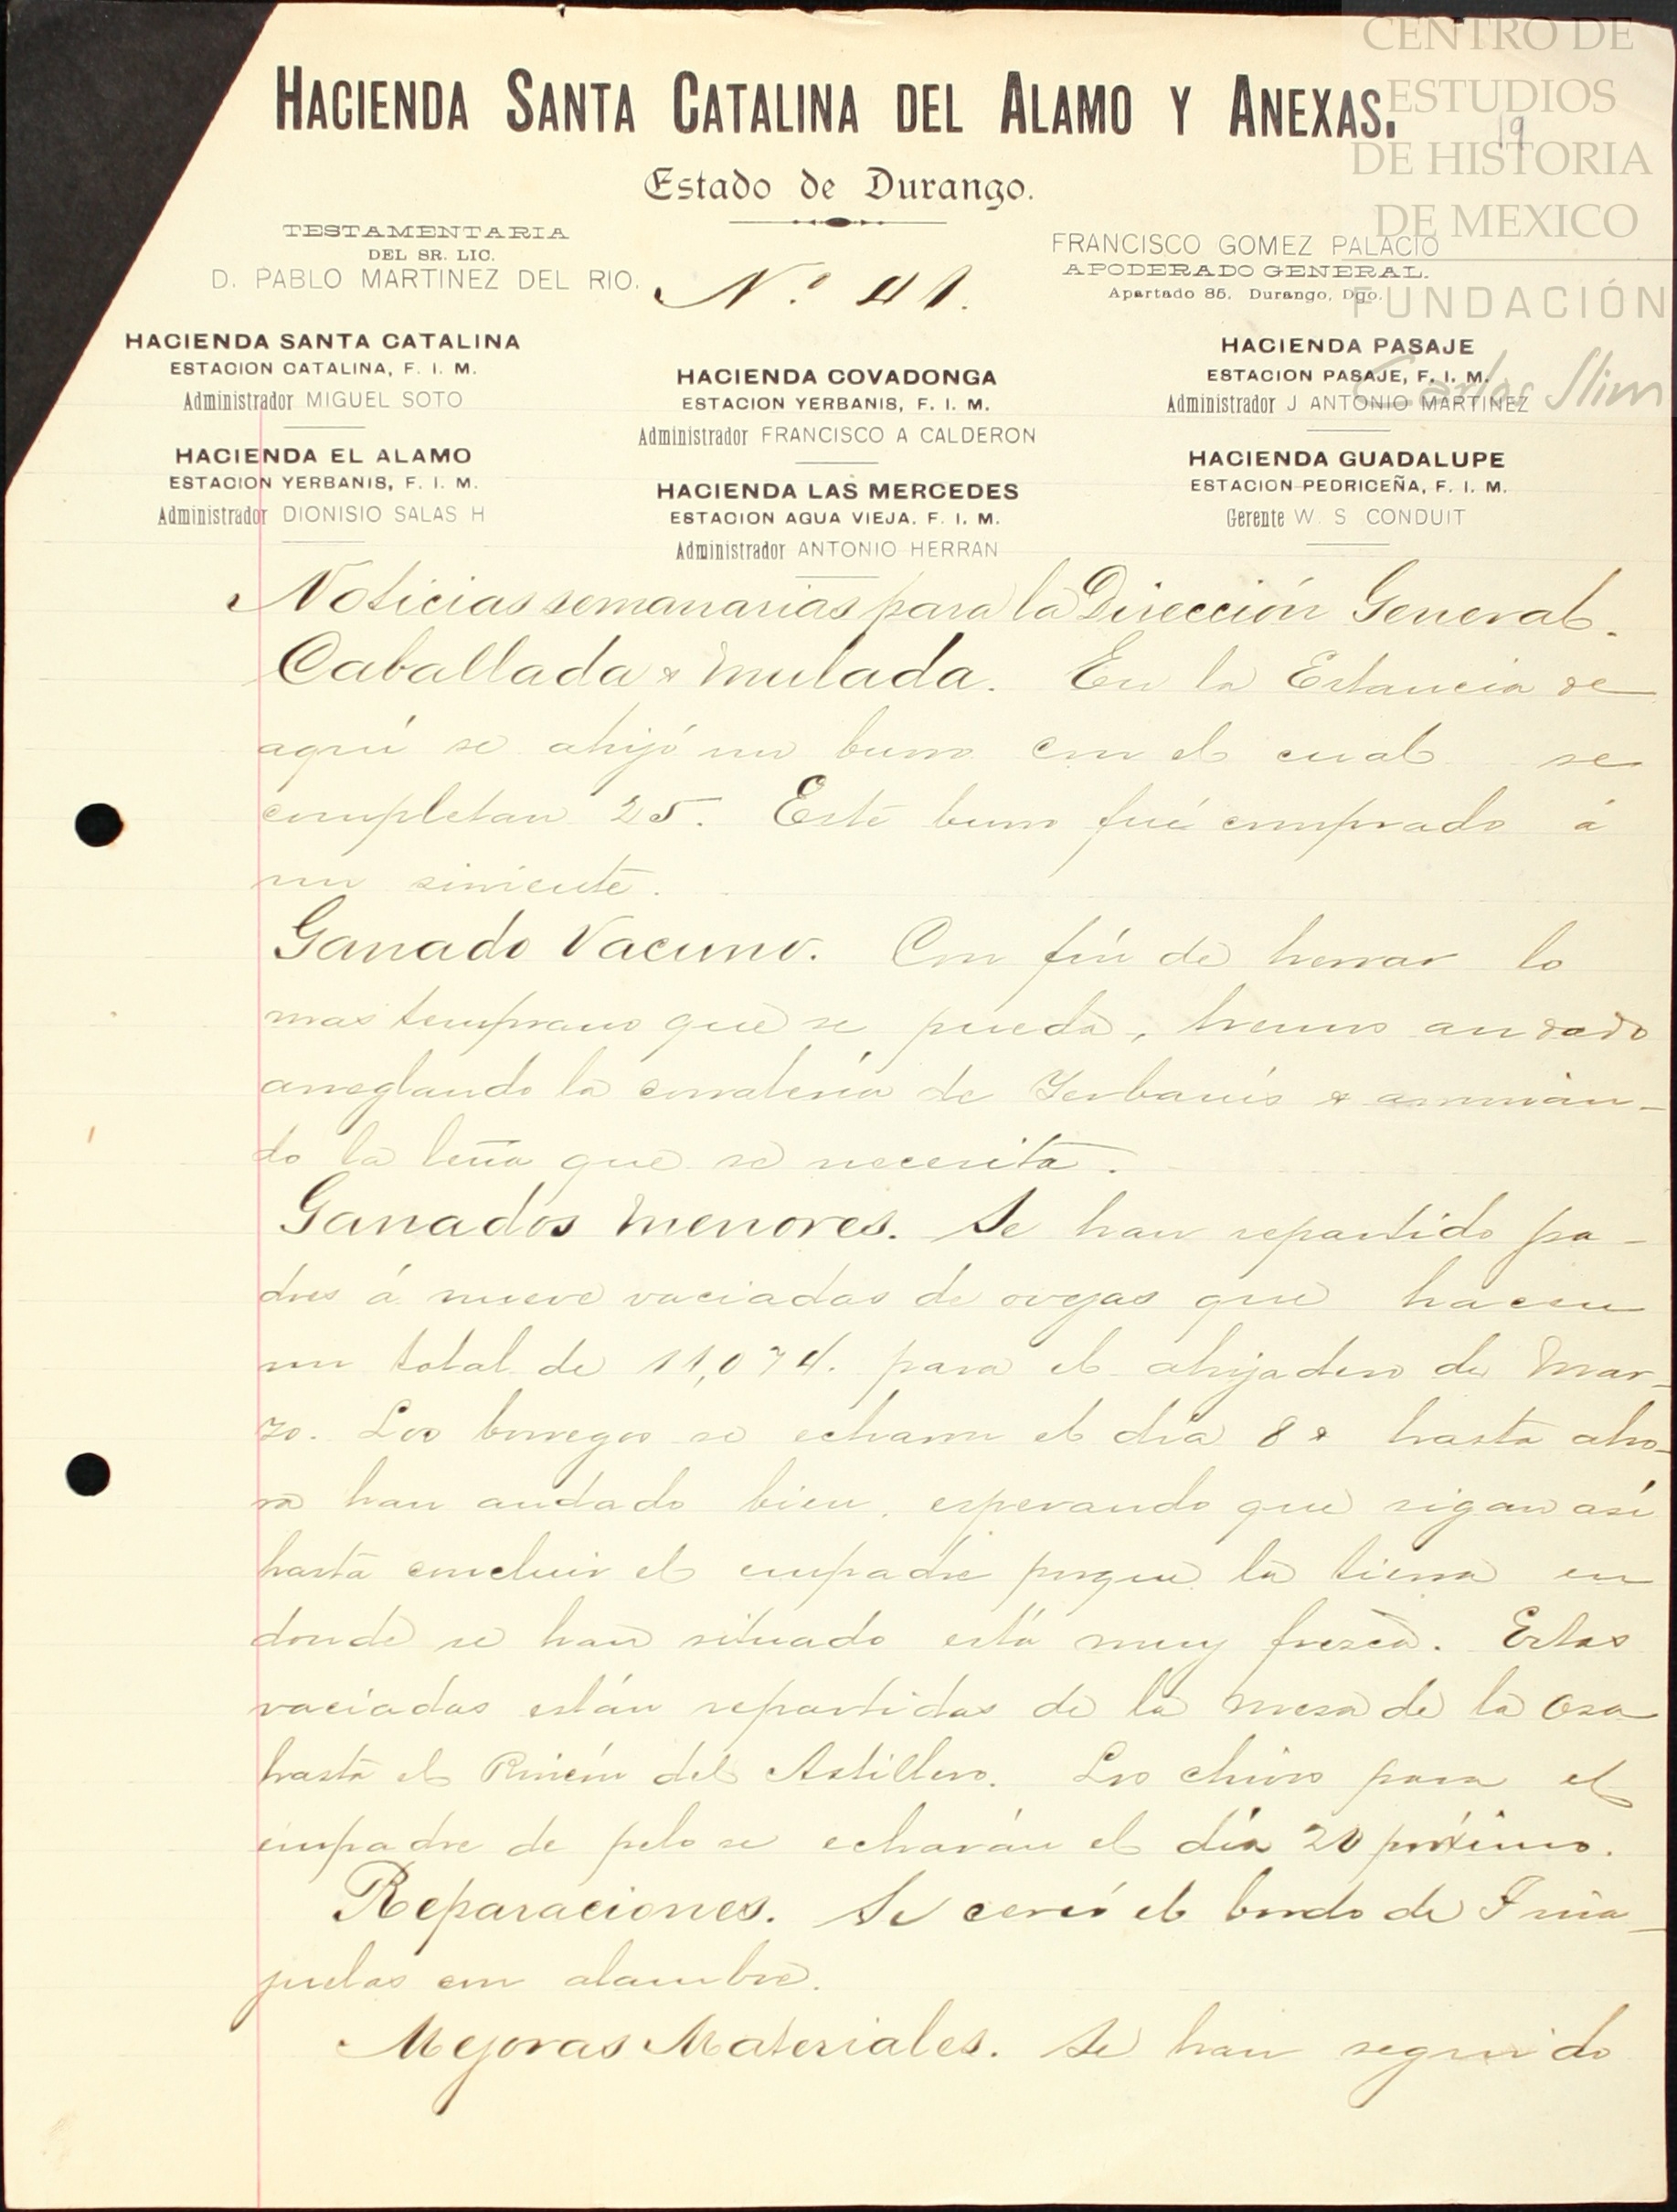 CENTRO DE
ESTUDIOS
DE HISTORIA
DE MEXICO
FUNDACIÓN
Carlos Slim
19
HACIENDA SANTA CATALINA DEL ALAMO Y ANEXAS.
Estado de Durango.
TESTAMENTARIA
DEL SR. LIC.
D. PABLO MARTINEZ DEL RIO.
N.º 41.
FRANCISCO GOMEZ PALACIO
APODERADO GENERAL.
Apartado 85. Durango, Dgo.
HACIENDA SANTA CATALINA
ESTACION CATALINA, F. I. M.
Administrador MIGUEL SOTO
HACIENDA EL ALAMO
ESTACION YERBANIS, F. I. M.
Administrador DIONISIO SALAS H
HACIENDA COVADONGA
ESTACION YERBANIS, F. I. M.
Administrador FRANCISCO A CALDERON
HACIENDA LAS MERCEDES
ESTACION AGUA VIEJA. F. I. M.
Administrador ANTONIO HERRAN
HACIENDA PASAJE
ESTACION PASAJE, F. I. M.
Administrador J ANTONIO MARTINEZ
HACIENDA GUADALUPE
ESTACION PEDRICEÑA, F. I. M.
Gerente W. S CONDUIT
Noticias semanarias para la Dirección General.
Caballada & mulada. En la Estancia de
aquí se ahijó un burro con el cual se
completan 25. Este burro fué comprado á
un sirviente.
Ganado Vacuno. Con fín de herrar lo
mas temprano que se pueda, hemos andado
arreglando la corralería de Yerbanís &
do la leña que se necesita.
Ganados menores. Se han repartido pa-
dres á nueve vaciadas de ovejas que hacen
un total de 11,074. para el ahijadero de Mar-
zo. Los borregos se echaron el día 8 & hasta aho-
ra han andado bien, esperando que sigan así
hasta concluir el empadre porque la tierra en
donde se han situado está muy fresca. Estas
vaciadas están repartidas de la mesa de la Osa
hasta el Rincón del Astillero. Los chivos para el
empadre de pelo se echarán el día 20 próximo.
Reparaciones. Se cercó el bordo de
con alambre.
Mejoras Materiales. Se han seguido